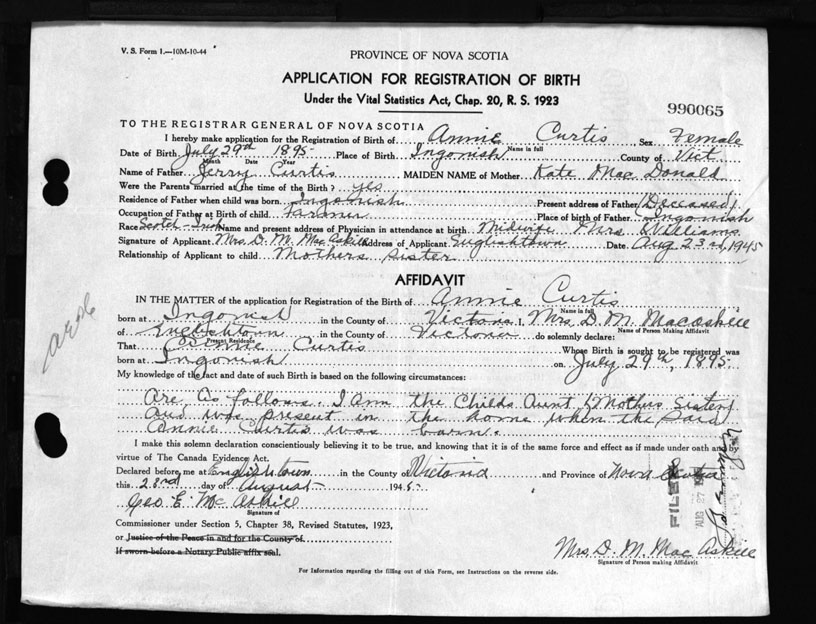 V. S. Form 1.—10M-10-44
PROVINCE OF NOVA SCOTIA
APPLICATION FOR REGISTRATION OF BIRTH
Under the Vital Statistics Act, Chap. 20, R. S. 1923
990065
TO THE REGISTRAR GENERAL OF NOVA SCOTIA
I hereby make application for the Registration of Birth of Annie Curtis Sex Female
Name in full
Date of Birth July 29th 1895 Place of Birth Ingonish County of Vict
Month Date Year
Name of Father Jerry Curtis MAIDEN NAME of Mother Kate Mac Donald
Were the Parents married at the time of the Birth? yes
Residence of Father when child was born Ingonish Present address of Father (Deceased)
Occupation of Father at Birth of child Farmer Place of birth of Father Ingonish
Race Scotch-Irish Name and present address of Physician in attendance at birth Midwife Mrs Williams
Signature of Applicant Mrs. D. M. Mac Askill Address of Applicant Englishtown Date Aug 23rd, 1945
Relationship of Applicant to child Mothers Sister
AFFIDAVIT
IN THE MATTER of the application for Registration of the Birth of Annie Curtis
Name in full
born at Ingonish in the County of Victoria I, Mrs. D. M. Macaskill
Name of Person Making Affidavit
of Englishtown in the County of Victoria do solemnly declare:
Present Residence
That Annie Curtis Whose Birth is sought to be registered was
born at Ingonish on July 29th, 1895.
My knowledge of the fact and date of such Birth is based on the following circumstances:
Are as follows. I Am the Childs Aunt (Mothers Sister)
and was present in the home when the Said
Annie Curtis was born.
I make this solemn declaration conscientiously believing it to be true, and knowing that it is of the same force and effect as if made under oath and by
virtue of The Canada Evidence Act.
Declared before me at Englishtown in the County of Victoria and Province of Nova Scotia
this 23rd day of August 1945.
Geo. E. Mc Askill
Signature of
Commissioner under Section 5, Chapter 38, Revised Statutes, 1923,
or Justice of the Peace in and for the County of
If sworn before a Notary Public affix seal.
FILED
AUG 27
Mrs D. M. Mac Askill
Signature of Person making Affidavit
For Information regarding the filling out of this Form, see Instructions on the reverse side.